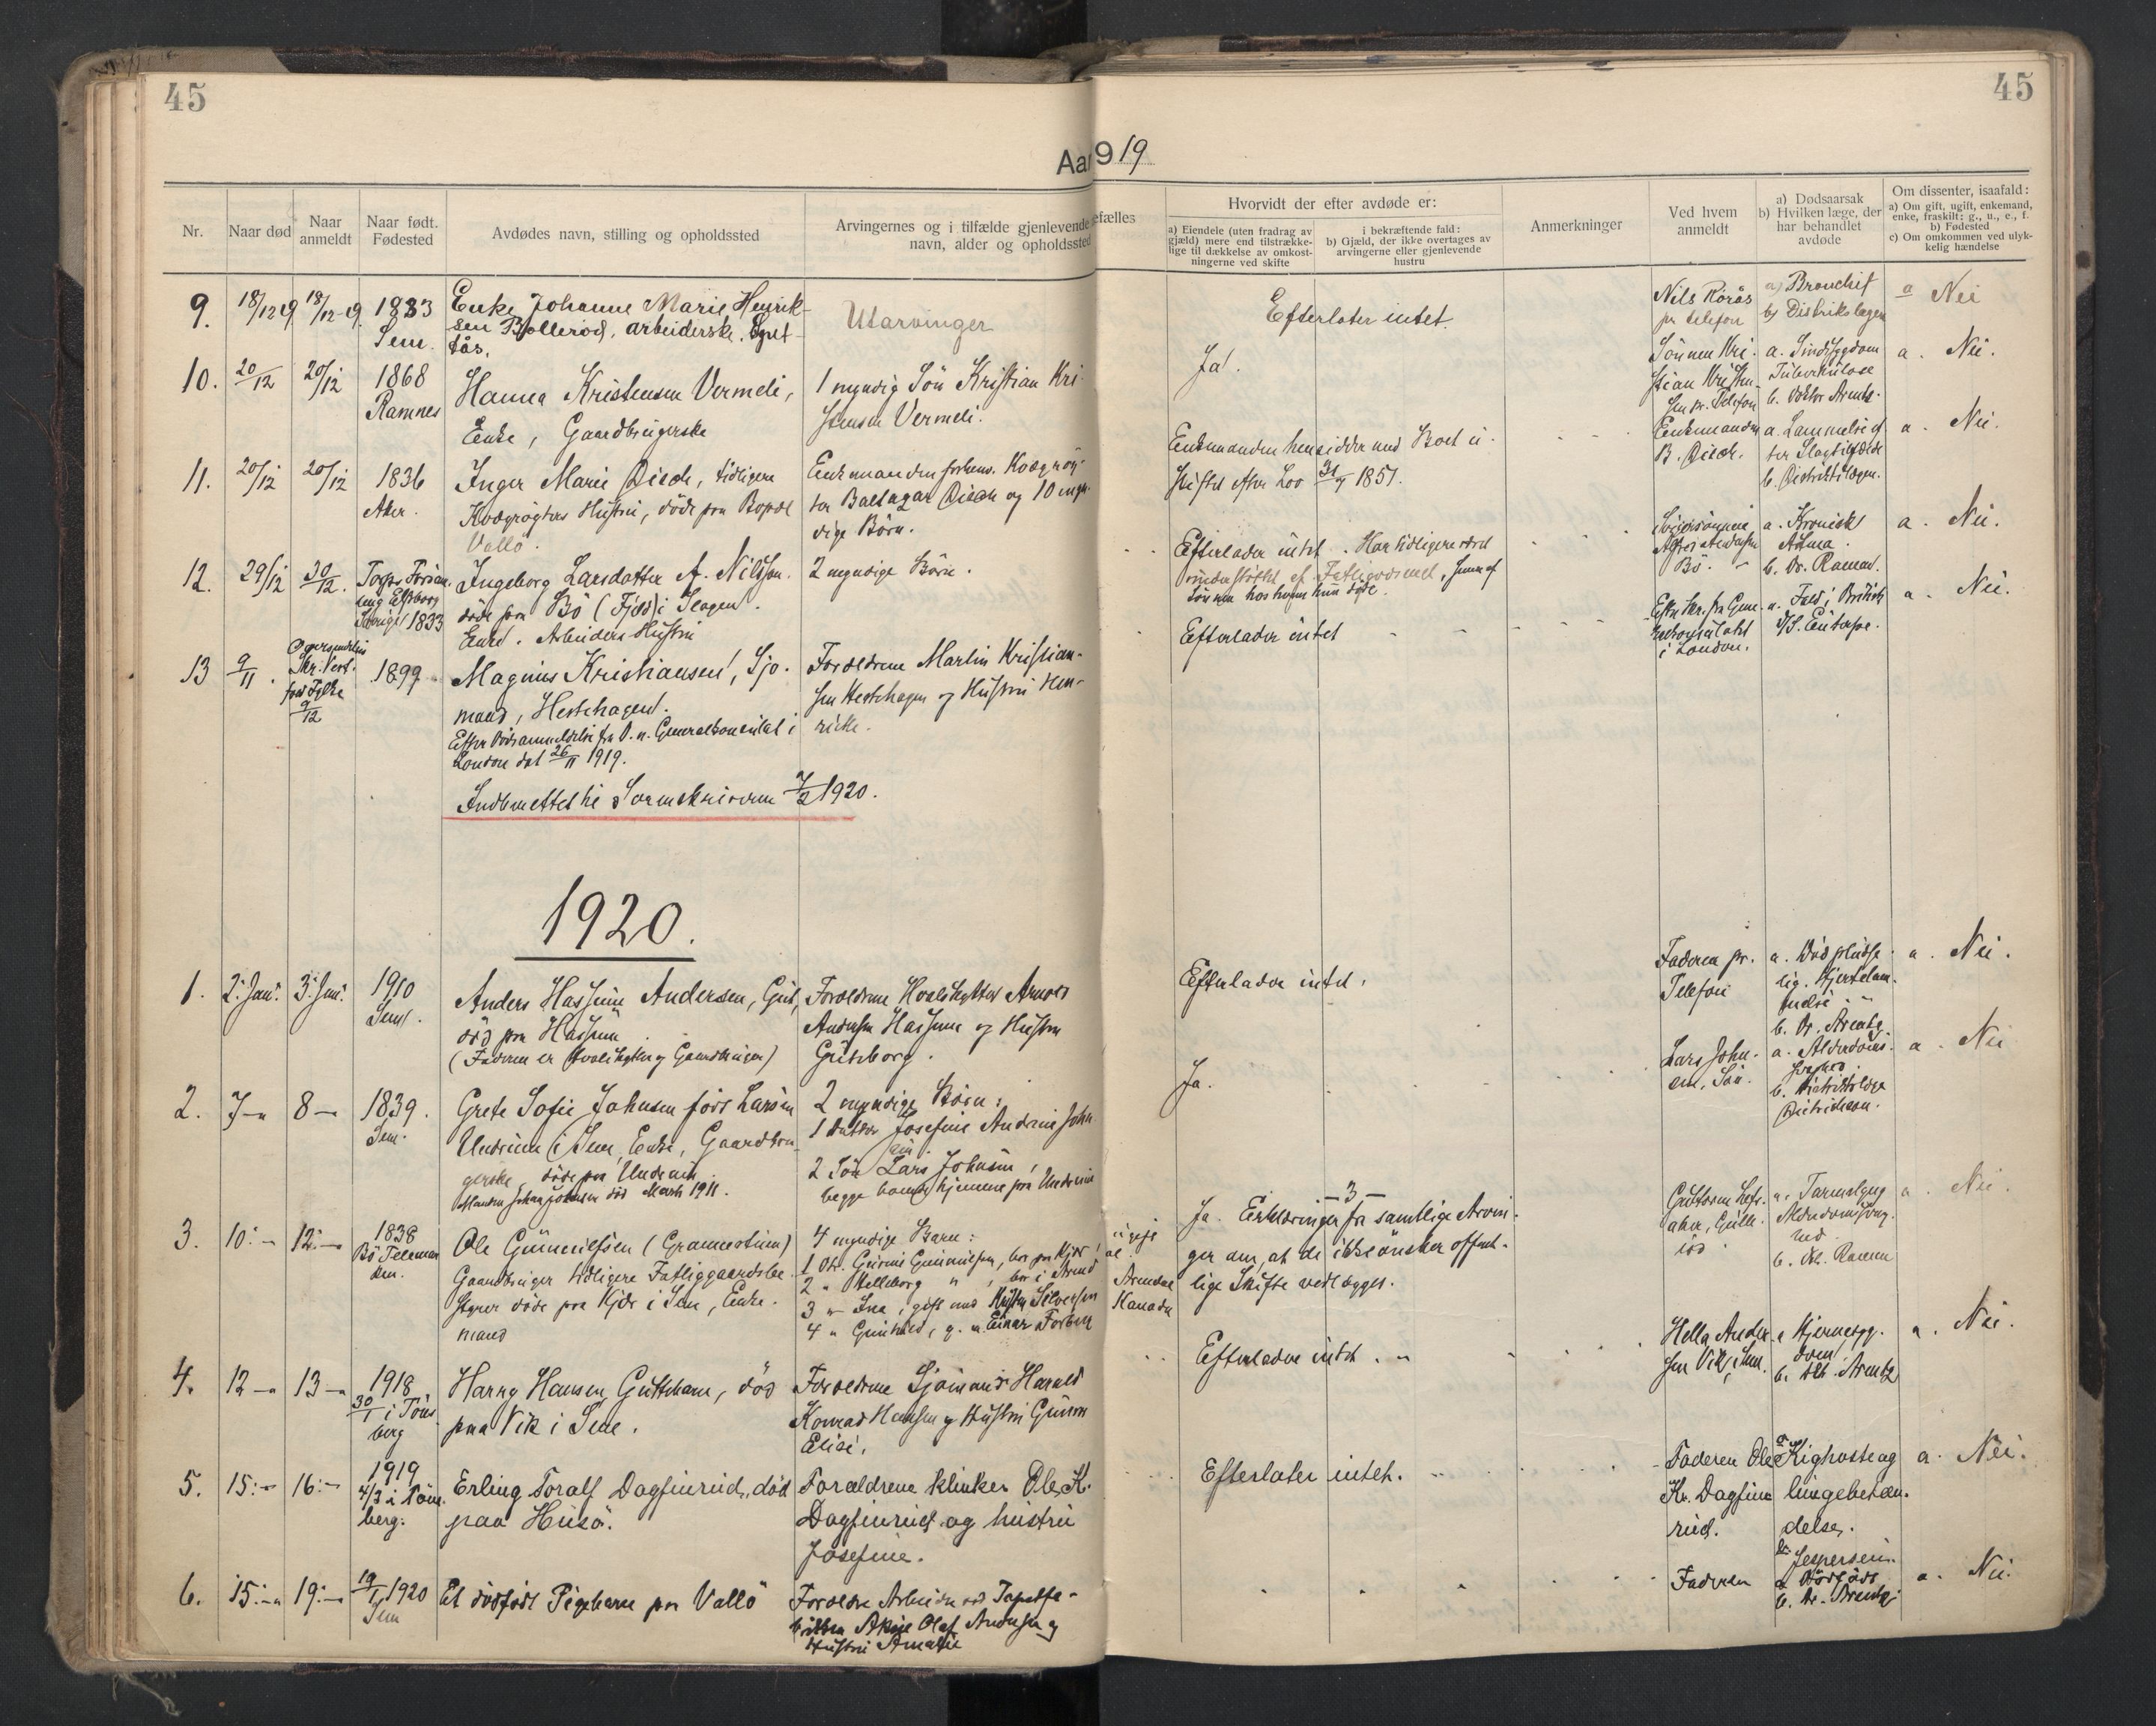 45
45
Aar 1919
Nr.
Naar død
Naar anmeldt
Naar født. Fødested
Avdødes navn, stilling og opholdssted
Arvingernes og i tilfælde gjenlevende
navn, alder og opholdssted
efælles
Hvorvidt der efter avdøde er:
a) Eiendele (uten fradrag av
gjæld) mere end tilstrække-
lige til dækkelse av omkost-
ningerne ved skifte
i bekræftende fald:
b) Gjæld, der ikke overtages av
arvingerne eller gjenlevende
hustru
Anmerkninger
Ved hvem
anmeldt
a) Dødsaarsak
b) Hvilken læge, der
har behandlet
avdøde
Om dissenter, isaafald:
a) Om gift, ugift, enkemand,
enke, fraskilt: g., u., e., f.
b) Fødested
c) Om omkommen ved ulyk-
kelig hændelse
9.
18/12 19
18/12-19.
1833
Sem.
Enke Johanne Marie Henrik-
sen Bollerød, arbeiderske.
Utarvinger
Efterlater intet.
Nils Rörås
pr telefon
a) Bronchit
b) Distrikslægen
a Nei
10.
20/12
20/12
1868
Ramnes
Hanna Kristensen Vermeli,
Enke, Gaardbrugerske
1 myndig Sön Kristian Kri-
stensen Vermeli.
Ja.
Sönnen Kri-
stian Kristen-
sen pr. Telefon
a. Sindssygdom
Tuberkulose
b. Doktor Arentz.
a. Nei.
11.
20/12
20/12
1836
Aker.
Inger Marie Disch, tidligere
Kvægrøgters Hustru, döde paa Bopæl
Vallö.
Enkemanden forhenv. Kvægrög-
ter Baltazar Disch og 10 myn-
dige Börn.
Enkemanden hensidder med Boet u-
skiftet efter Lov 31/7 1851.
Enkemanden
B. Disch.
a. Lammelse ef-
ter Slagtilfælde
b. Distriktslægen.
a. Nei.
12.
29/12
30/12.
1833
Ingeborg Larsdatter f. Nilsson.
döde paa Bö (Fjeld) i Slagen.
Enke. Arbeiders Hustru
2 myndige Börn.
Efterlader intet. Har tidligere været
understöttet af Fattigvæsenet, senere af
Sönnen hos hvem hun döde.
Bö.
a. Kronisk
Astma.
b. Dr. Ramm.
a. Nei.
13
9/11.
9/12
1899
Magnus Kristiansen, Sjö-
mand, Hestehagen.
Efter Dødsanmeldelse fra D. n. Generalkonsulat i
London dat 26/11 1919.
Forældrene Martin Kristian-
sen Hestehagen og Hustru Hen-
rikke.
Efterlader intet
Efter Skr. fra Gene-
ralkonsulatet
i London.
a. Fald i Britisk
D/S. Euterpe.
a. Nei.
Indberettet til Sorenskriveren 7/2 1920.
1920.
1.
2. Jan.
3. Jan.
1910
Sem.
Anders Hassum Andersen, Gut,
död paa Hassum
(Faderen er Hvalskytter og Gaardbruger)
Forældrene Hvalskytter Arnold
Andersen Hassum og Hustru
Gutborg.
Efterlader intet.
Faderen pr.
Telefon
a. Död pludse-
lig. Hjertelam-
melse
b. Dr. Arentz.
a. Nei.
2.
7-
8-
1839.
Sem.
Grete Sofie Johnsen född Larsen
Undrum i Sem, Enke, Gaardbru-
gerske, döde paa Undrum.
Manden Johan Johnsen död Marts 1911.
2 myndige Börn:
1 Datter Josefine Andrine John-
sen
2 Sön Lars Johnsen,
begge boende hjemme paa Undrum
Ja.
Lars John-
sen, Sön.
a. Alderdoms-
svaghed.
b. Distriktslæge
Dietrichson.
a. Nei
3.
10.-
12.-
1838
Bö Telemar-
ken.
Ole Gunnulfsen (Grametun)
Gaardbruger tidligere Fattiggaardsbe-
styrer döde paa Kjær i Sem, Enke-
mand
4 myndige Barn:
1 Dtr. Gurine Gunnulfsen, bor paa Kjær
2 " Helleborg " , bor i Arend
3 " Ina, gift med Kristen Silversen
4 " Gunhild, g. m. Einar Torbern
Arendal
Kanada
- 3 -
Ja. Erklæringer fra samtlige Arvin-
ger om, at de ikke önsker offent-
lige Skifte vedlægges.
a. Tarmslyng
Alderdomssvag-
hed
b. Dr. Ramm
a. Nei.
4.
12-
13-
1918
30/1 i Töns-
berg
Harry Hansen, Guttebarn, död
paa Vik i Sem.
Forældrene Sjömand Harald
Konrad Hansen og Hustru Gunda
Elise.
Efterlader intet.
Hella Ander-
sen Vik i Sem.
a. Hjernesyg-
dom
b. Dr. Arentz
a. Nei.
5.
15.-
16.-
1919
4/3 i Töns-
berg.
Erling Toralf Dagfinrud, död
paa Husö.
Forældrene klinker Ole K.
Dagfinrud og hustru
Josefine.
Efterlater intet.
Faderen Ole
Kr. Dagfin-
rud.
a. Kighoste og
lungebetæn-
delse.
b. Jespersen.
a. Nei.
6.
15.-
19.-
19/1 1920
Sem
Et dödfödt Pigebarn paa Vallö
Forældre Arbeider ved Tapetfa-
brikken Aksje Olaf Andersen og
Hustru Amalie
Faderen
a Dödfödt
b. Dr. Arentz
a. Nei.